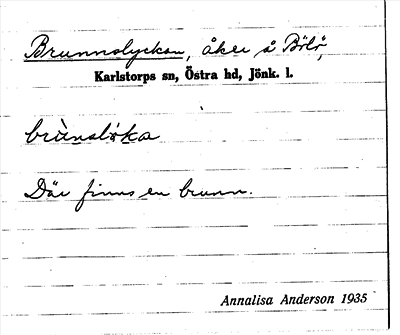 Brunnslyckan, åker å Bölö,
Karlstorps sn, Östra hd, Jönk. l.
brùnslỳka
Där finns en brunn.
Annalisa Anderson 1935